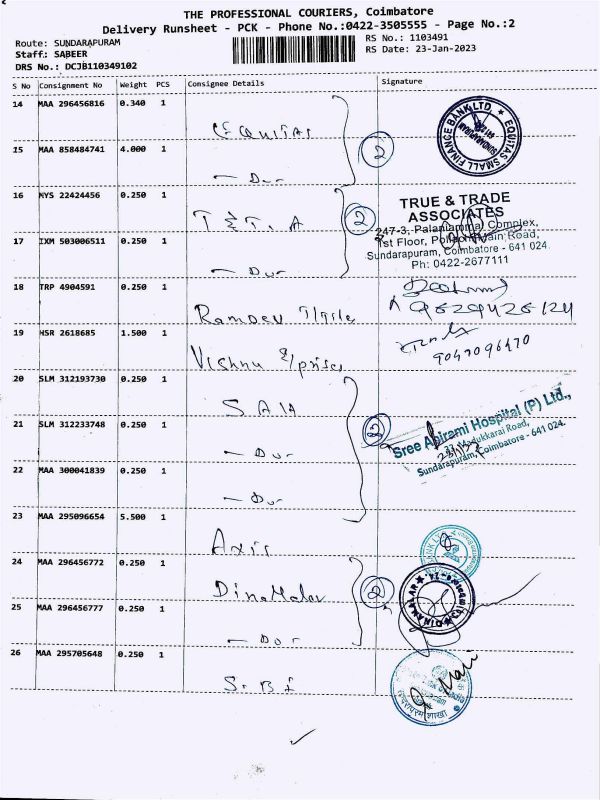 THE PROFESSIONAL COURIERS, Coimbatore
Delivery Runsheet - PCK - Phone No.:0422-3505555 - Page No.:2
Route: SUNDARAPURAM
RS No.: 1103491
Staff: SABEER
RS Date: 23-Jan-2023
DRS No.: DCJB110349102
S No Consignment No Weight PCS Consignee Details Signature
14 MAA 296456816 0.340 1 Equitas
EQUITAS SMALL FINANCE BANK LTD.
15 MAA 858484741 4.000 1 2
16 MYS 22424456 0.250 1 T & T. A 2
TRUE & TRADE
ASSOCIATES
247-3, Palaniammal Complex,
1st Floor, Main Road,
Sundarapuram, Coimbatore - 641 024.
Ph: 0422-2677111
17 IXM 503006511 0.250 1
18 TRP 4904591 0.250 1 Ramdev
19 HSR 2618685 1.500 1 Vishnu E/prises
9047096470
20 SLM 312193730 0.250 1 S.A.H
21 SLM 312233748 0.250 1
Sree Abirami Hospital (P) Ltd.,
33, Madukkarai Road,
Sundarapuram, Coimbatore - 641 024.
22 MAA 300041839 0.250 1
23 MAA 295096654 5.500 1 Axis
24 MAA 296456772 0.250 1 DinaMalar 2
DINAMALAR
25 MAA 296456777 0.250 1
26 MAA 295705648 0.250 1 S.B.I
Mali